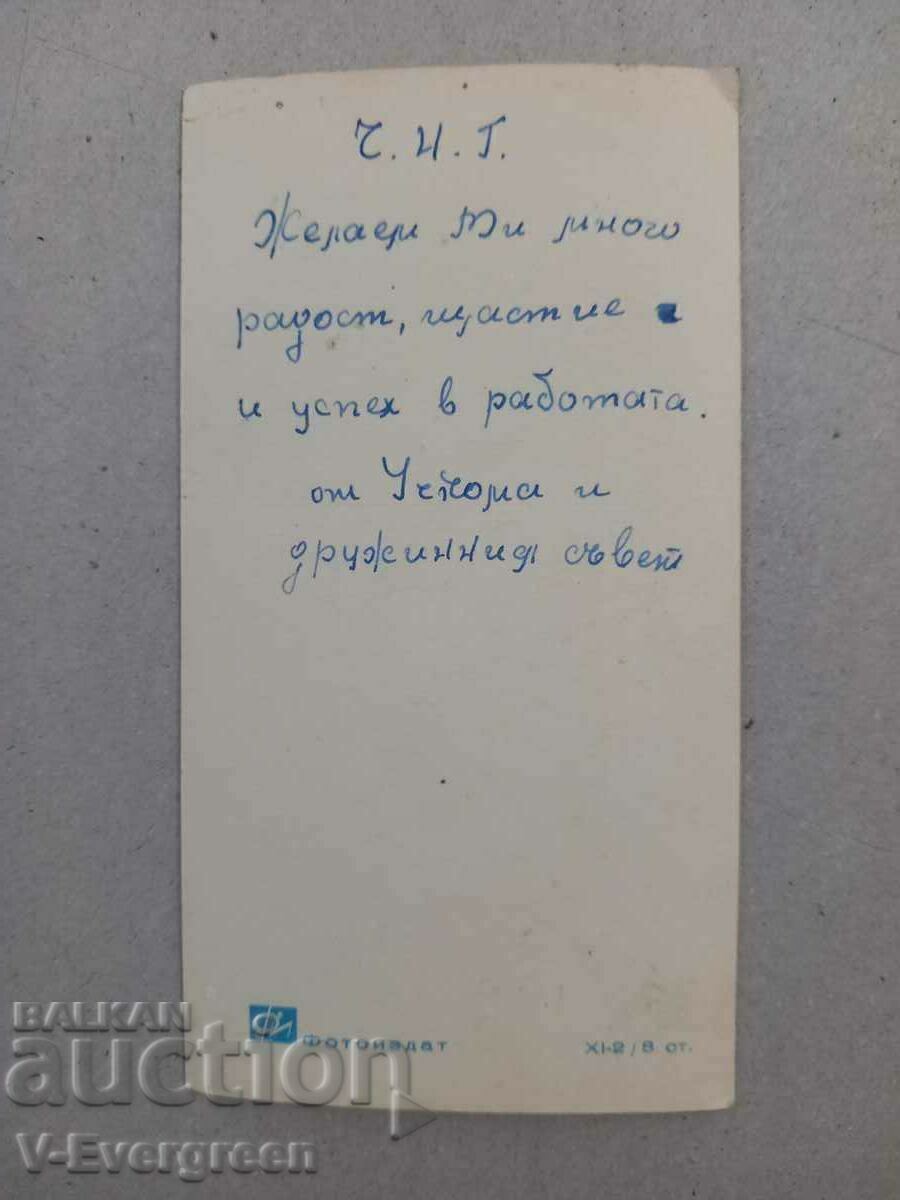 Ч.Н.Г.
Желаем Ти много
радост, щастие
и успех в работата.
от Учкома и
дружинния съвет
ФИ Фотоиздат
XI-2/8 ст.
BALKAN
auction
V-Evergreen